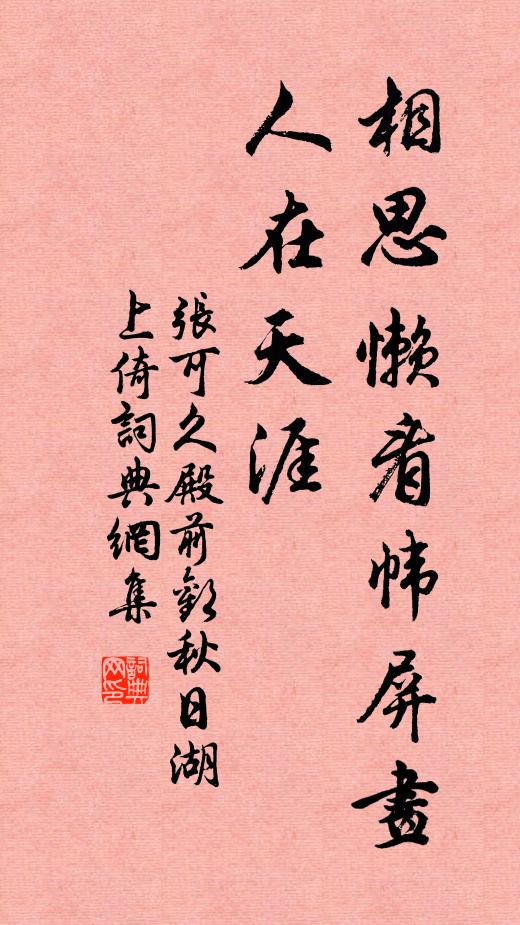 相思懶看幃屏畫
人在天涯
張可久殿前歡秋日湖
上倚詞典網集
詞典网印